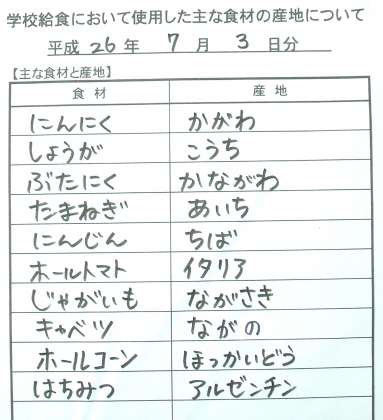 学校給食において使用した主な食材の産地について
平成 26 年 7 月 3 日分
【主な食材と産地】
食材 産地
にんにく かがわ
しょうが こうち
ぶたにく かながわ
たまねぎ あいち
にんじん ちば
ホールトマト イタリア
じゃがいも ながさき
キャベツ ながの
ホールコーン ほっかいどう
はちみつ アルゼンチン